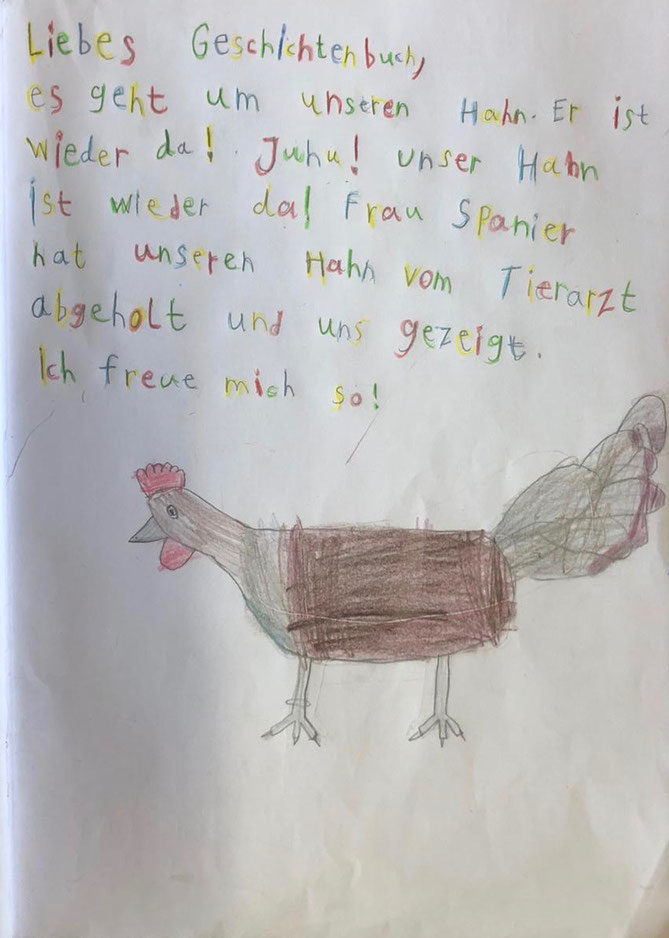 Liebes Geschichtenbuch,
es geht um unseren Hahn. Er ist
wieder da! Juhu! unser Hahn
ist wieder da! Frau Spanier
hat unseren Hahn vom Tierarzt
abgeholt und uns gezeigt.
Ich freue mich so!